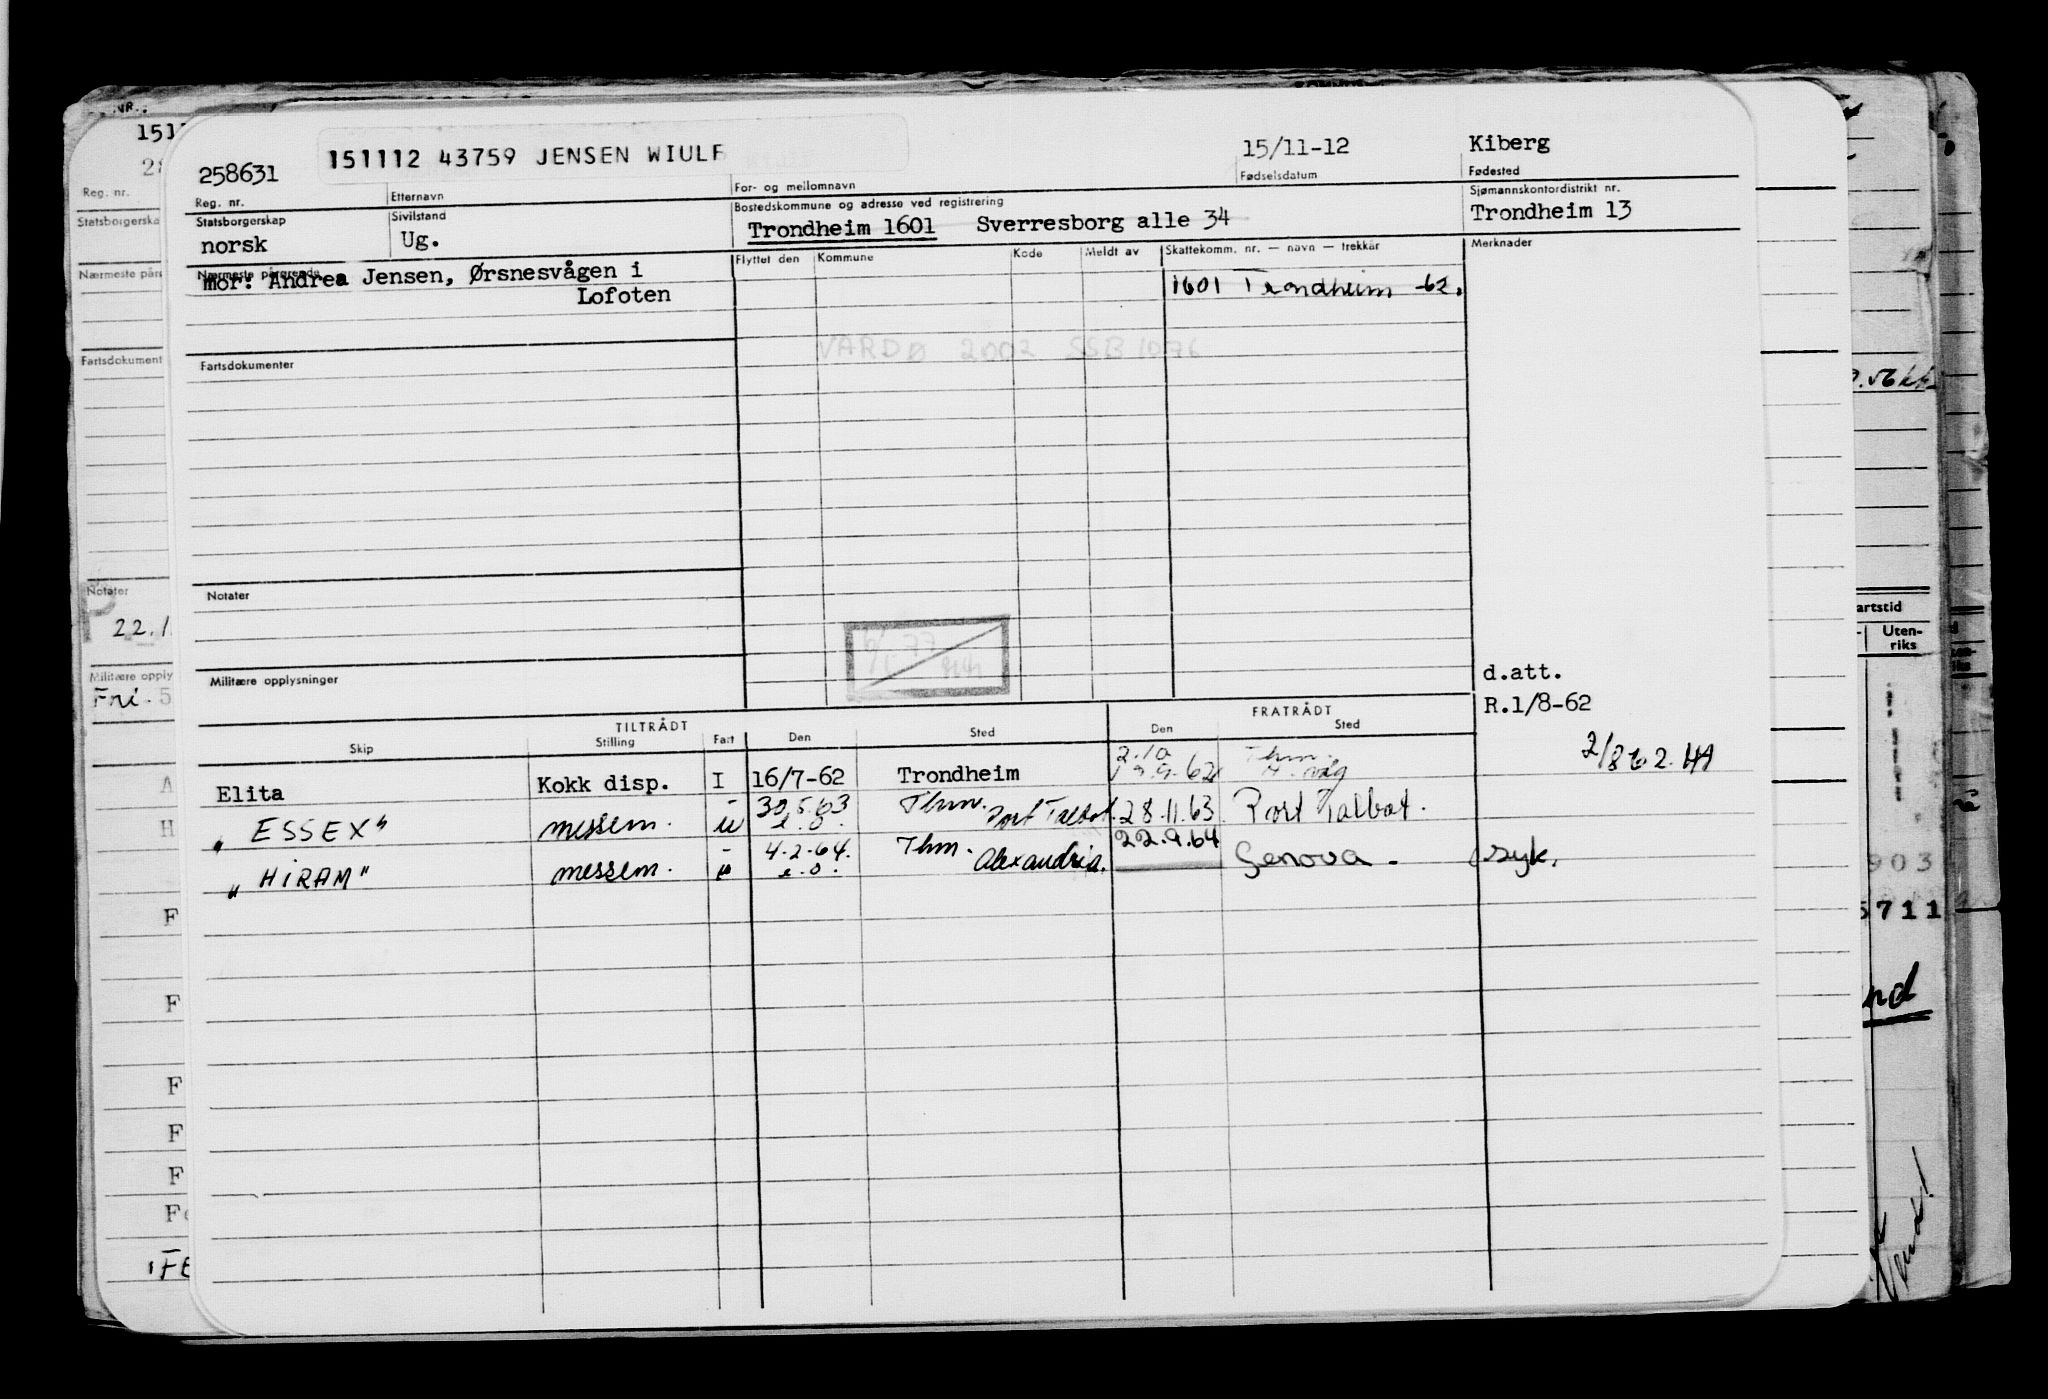 258631 151112 43759 JENSEN WIULF 15/11-12 Kiberg
Reg. nr. Etternavn For- og mellomnavn Fødselsdatum Fødested
Statsborgerskap Sivilstand Bostedskommune og adresse ved registrering Sjømannskontordistrikt nr.
norsk Ug. Trondheim 1601 Sverresborg alle 34 Trondheim 13
Nærmeste pårørende Flyttet den Kommune Kode Meldt av Skattekomm. nr. — navn — trekkår Merknader
mor: Andrea Jensen, Ørsnesvågen i
Lofoten
1601 Trondheim -62.
VARDØ 2002 SSB 1076
Fartsdokumenter
Notater
Militære opplysninger
d.att.
R.1/8-62
2/8 62. HA
TILTRÅDT FRATRÅDT
Skip Stilling Fart Den Sted Den Sted
Elita Kokk disp. I 16/7-62 Trondheim 2.10 62 Thm.
"ESSEX" messem. u 30.5.63 e.o. Thm. Port Talbot. 28.11.63 Port Talbot.
"HIRAM" messem. u 4.2.64. e.o. Thm. Alexandria. 22.9.64 Genova - syk.
NR.:
151
28
Reg. nr.
Statsborgerska
Nærmeste påre
Fartsdokument
Notater
22.1
Militære opply
Fri. 5
A
H
F
F
F
F
F
Fo
FE
artstid
Uten-
riks
903
5711
nd